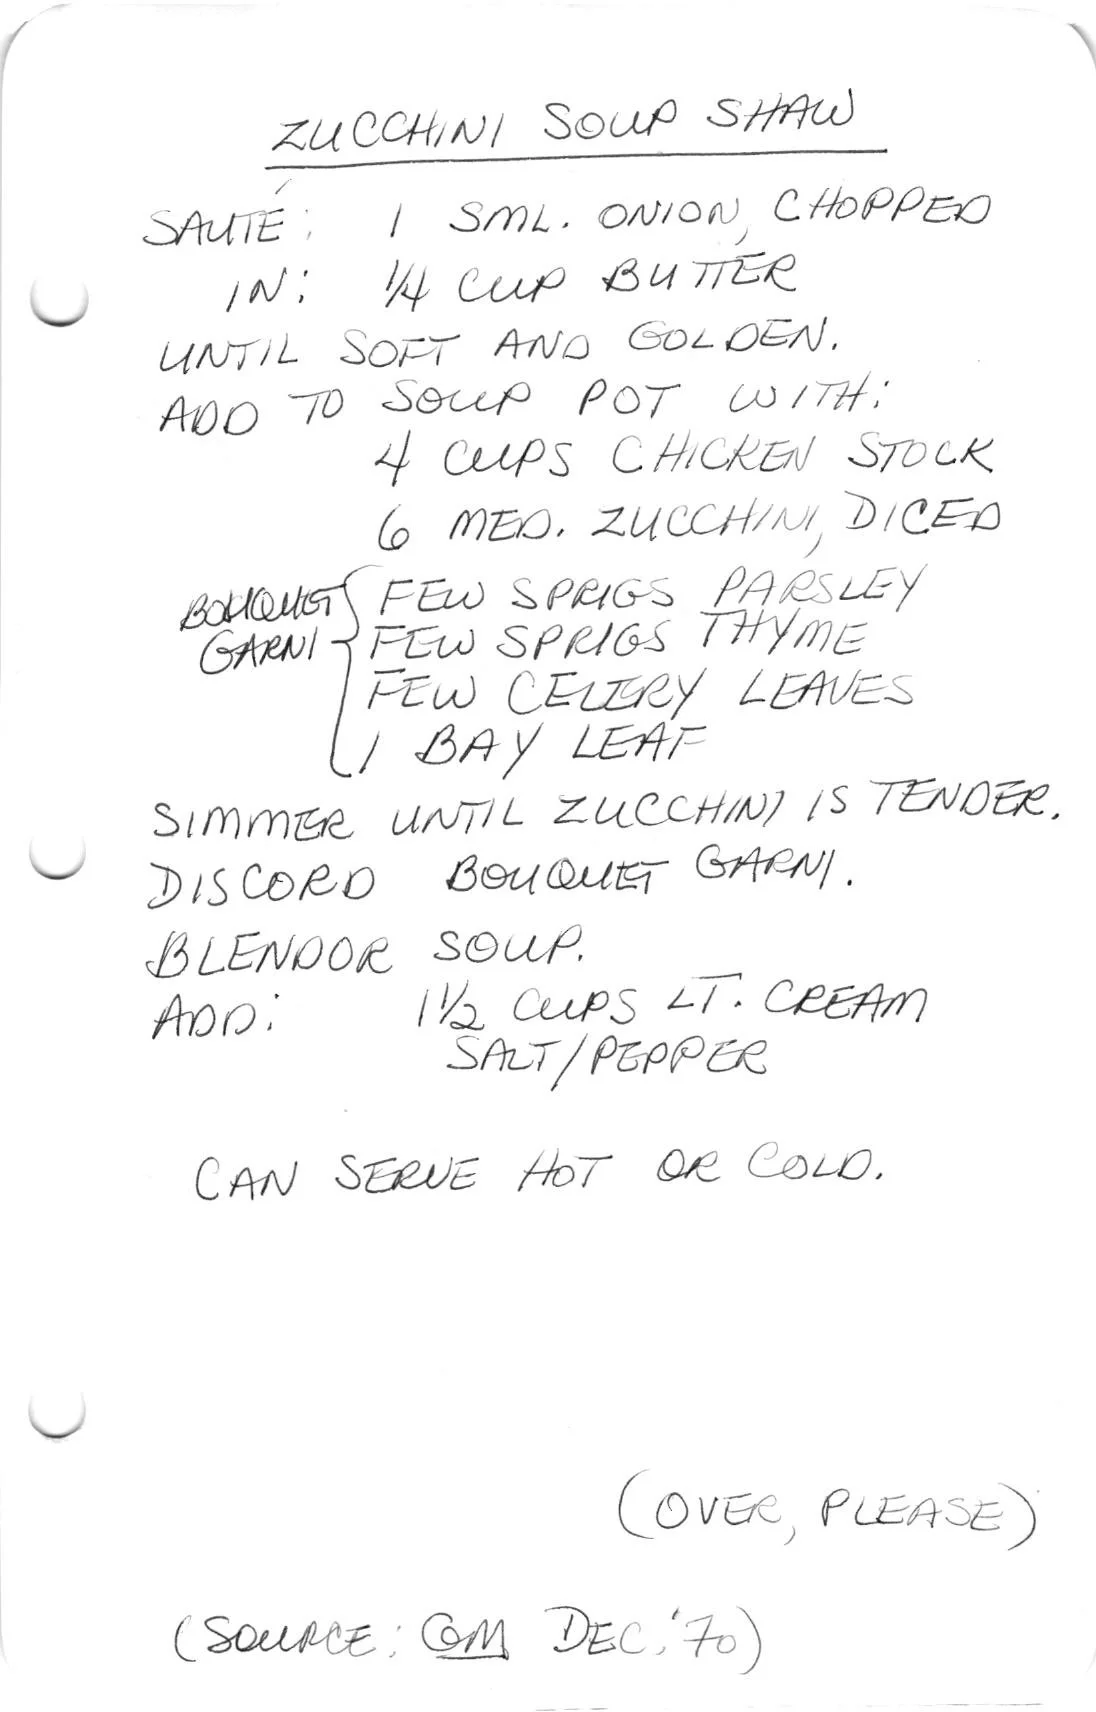 ZUCCHINI SOUP SHAW
SAUTÉ: 1 SML. ONION, CHOPPED
IN: 1/4 CUP BUTTER
UNTIL SOFT AND GOLDEN.
ADD TO SOUP POT WITH:
4 CUPS CHICKEN STOCK
6 MED. ZUCCHINI, DICED
BOUQUET GARNI { FEW SPRIGS PARSLEY
FEW SPRIGS THYME
FEW CELERY LEAVES
1 BAY LEAF
SIMMER UNTIL ZUCCHINI IS TENDER.
DISCORD BOUQUET GARNI.
BLENDOR SOUP.
ADD: 1 1/2 CUPS LT. CREAM
SALT/PEPPER
CAN SERVE HOT OR COLD.
(OVER, PLEASE)
(SOURCE: GM DEC. '70)